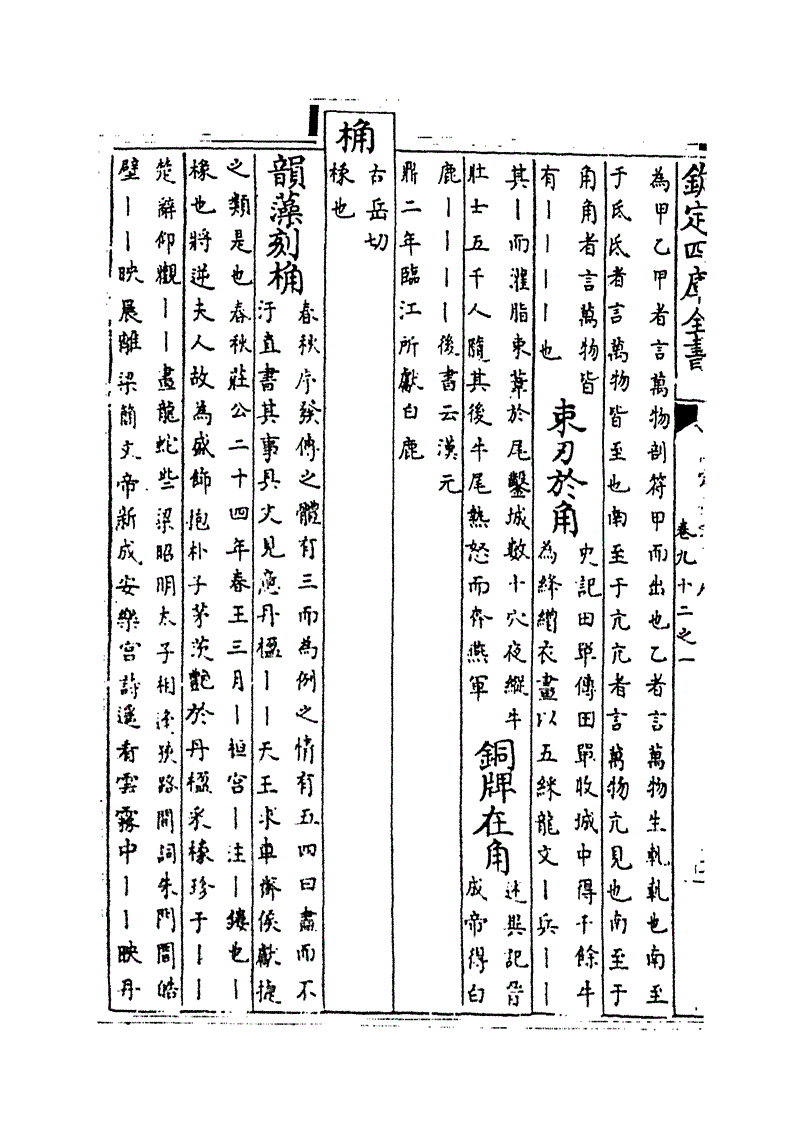 欽定四庫全書
卷九十二之一
為甲乙甲者言萬物剖符甲而出也乙者言萬物生軋軋也南至
于氐氐者言萬物皆至也南至于亢亢者言萬物亢見也南至于
角角者言萬物皆
有丨丨丨丨也
束刃於角
史記田單傳田單收城中得千餘牛
為絳繒衣畫以五綵龍文丨兵丨丨
其丨而灌脂束葦於尾鑿城數十穴夜縱牛
壯士五千人隨其後牛尾熱怒而奔燕軍
銅牌在角
述異記晉
成帝得白
鹿丨丨丨丨後書云漢元
鼎二年臨江所獻白鹿
桷
古岳切
椽也
韻藻刻桷
春秋序發傳之體有三而為例之情有五四曰盡而不
汙直書其事具文見意丹楹丨丨天王求車齊侯獻捷
之類是也春秋莊公二十四年春王三月丨桓宮丨注丨鏤也丨
椽也將逆夫人故為盛飾抱朴子茅茨艷於丹楹采椽珍于丨丨
楚辭仰觀丨丨畫龍蛇些梁昭明太子相逢狹路間詞朱門間皓
壁丨丨映晨離梁簡文帝新成安樂宮詩遙看雲霧中丨丨映丹